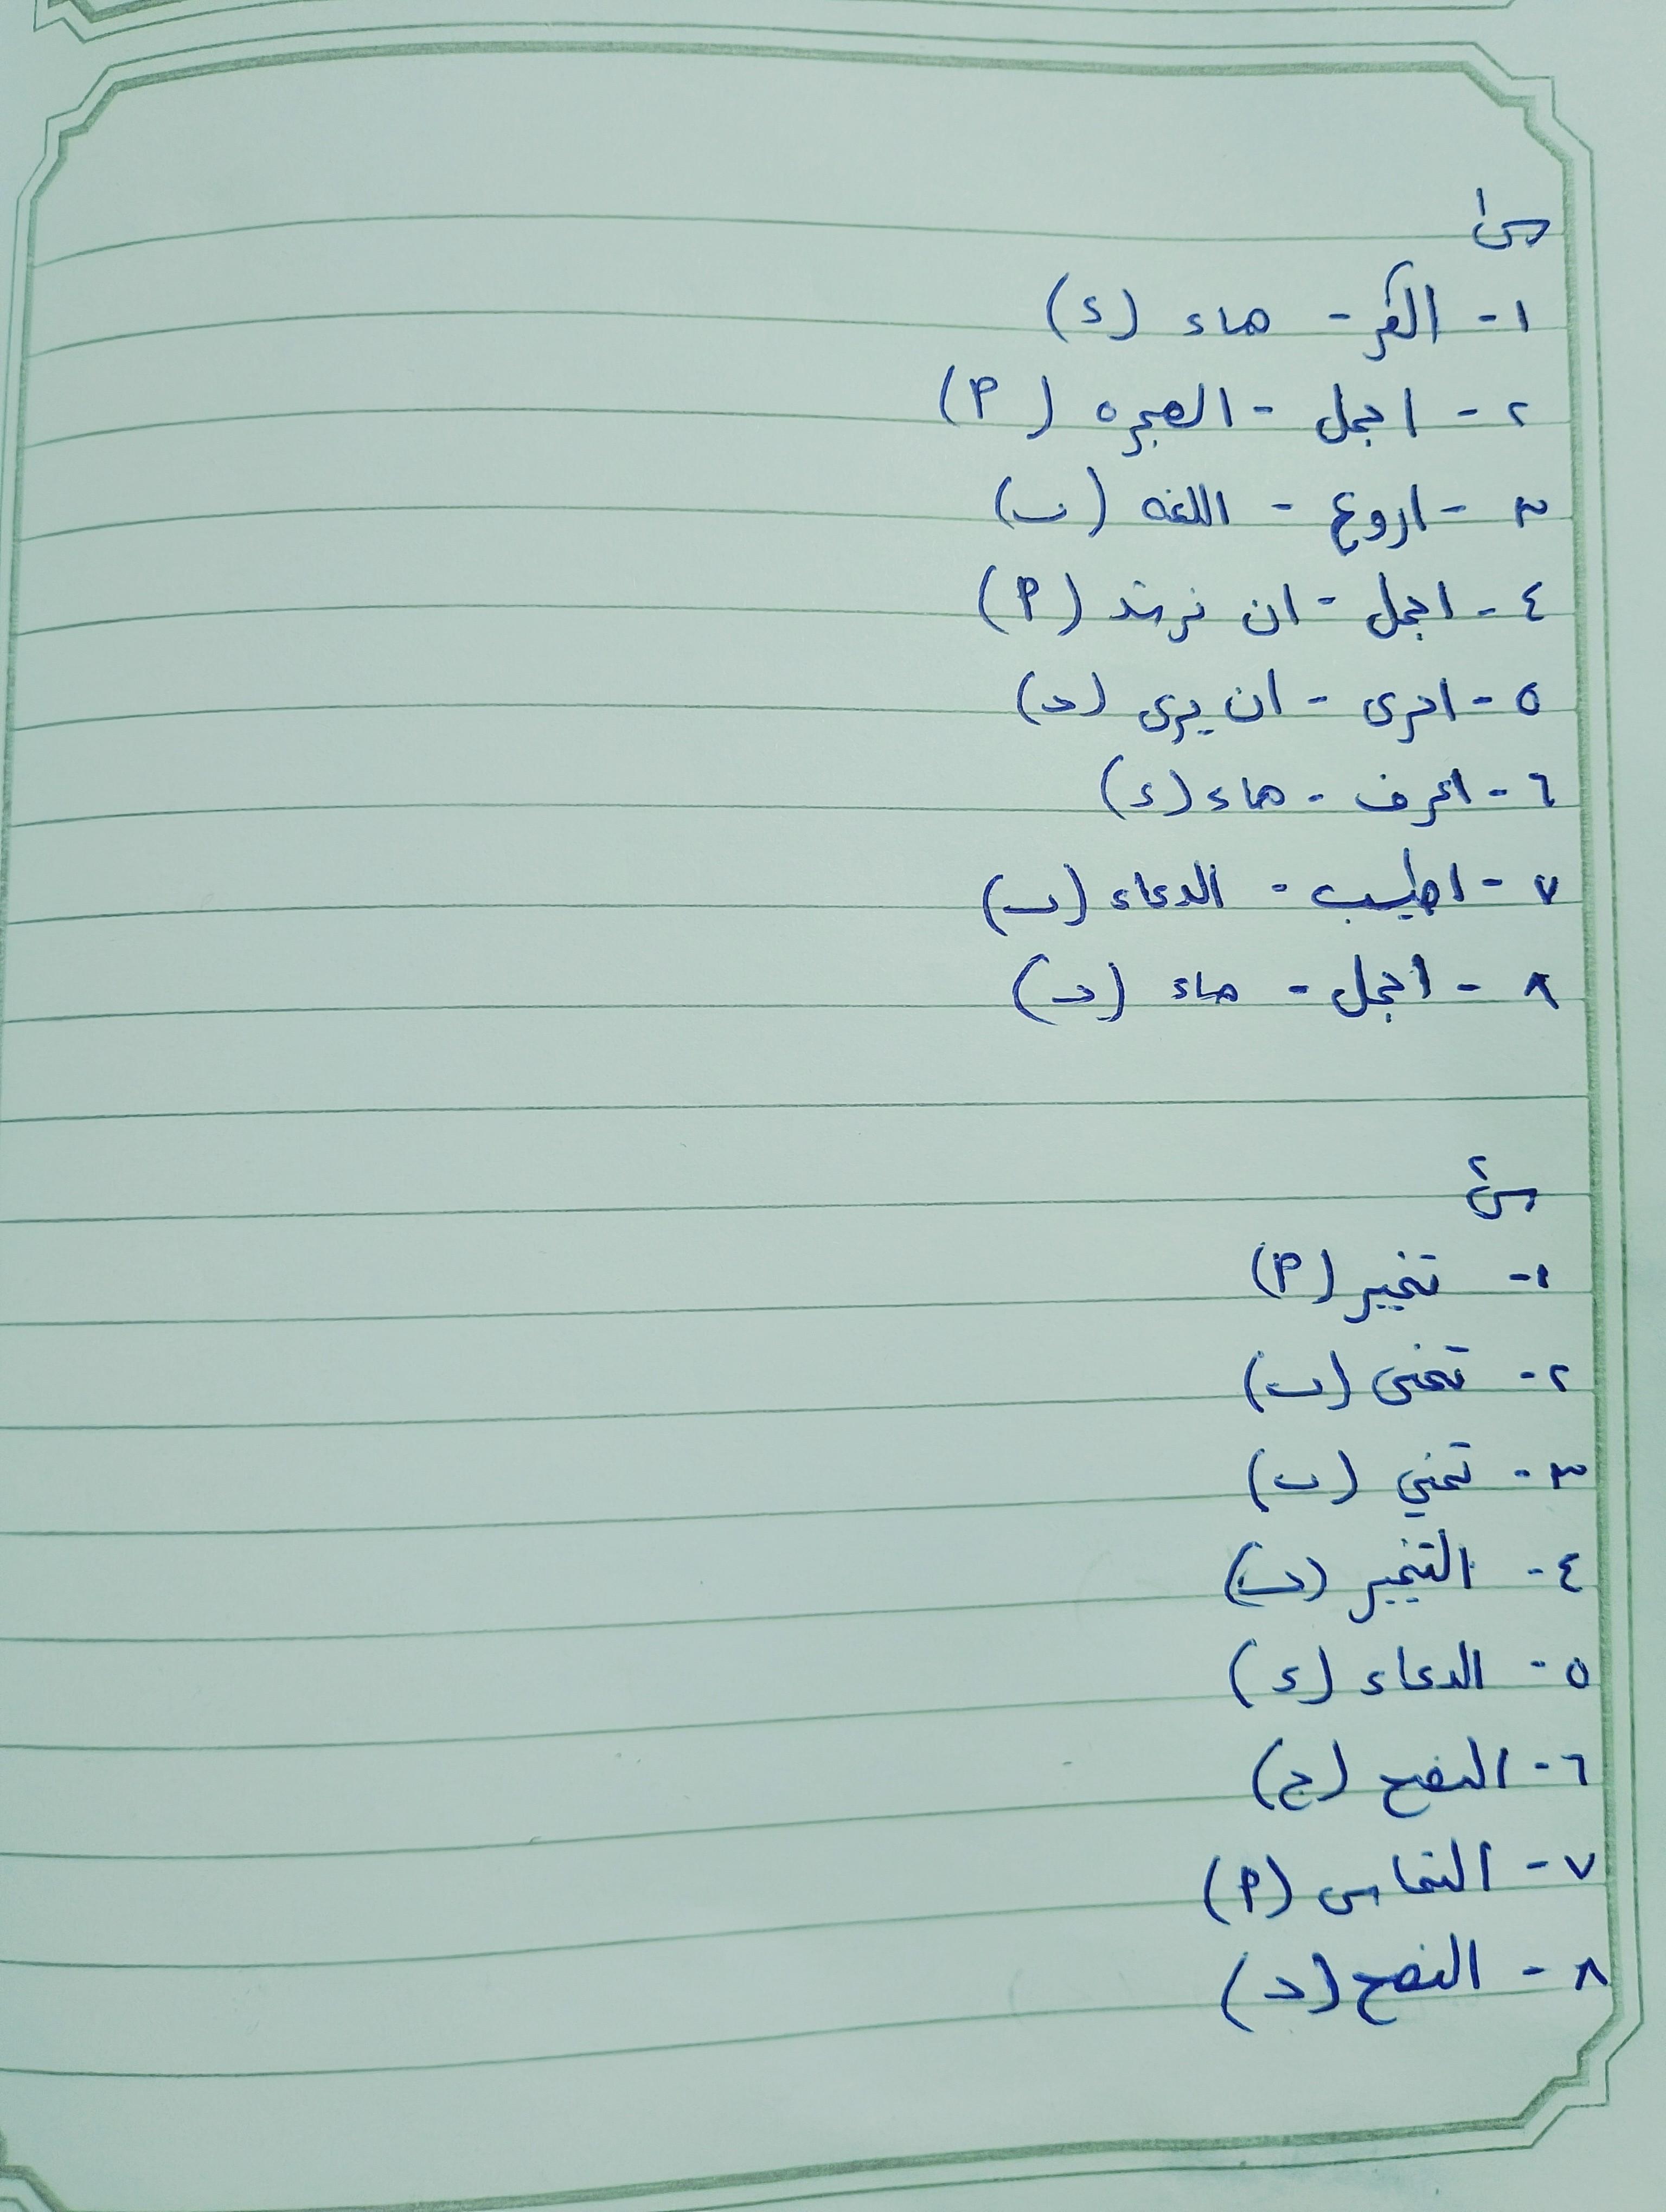 س١
١- الفكر - هاء (د)
٢- اجمل - الهجره (أ)
٣- اروع - اللغه (ب)
٤- اجمل - ان نرتد (أ)
٥- احرى - ان يرى (د)
٦- اعرف - هاء (د)
٧- اطيب - الدعاء (ب)
٨- اجمل - هاء (د)
س٢
١- تخيير (أ)
٢- تمنى (ب)
٣- تمني (ب)
٤- التخيير (ب)
٥- الدعاء (د)
٦- النصح (ج)
٧- التماس (أ)
٨- النصح (د)